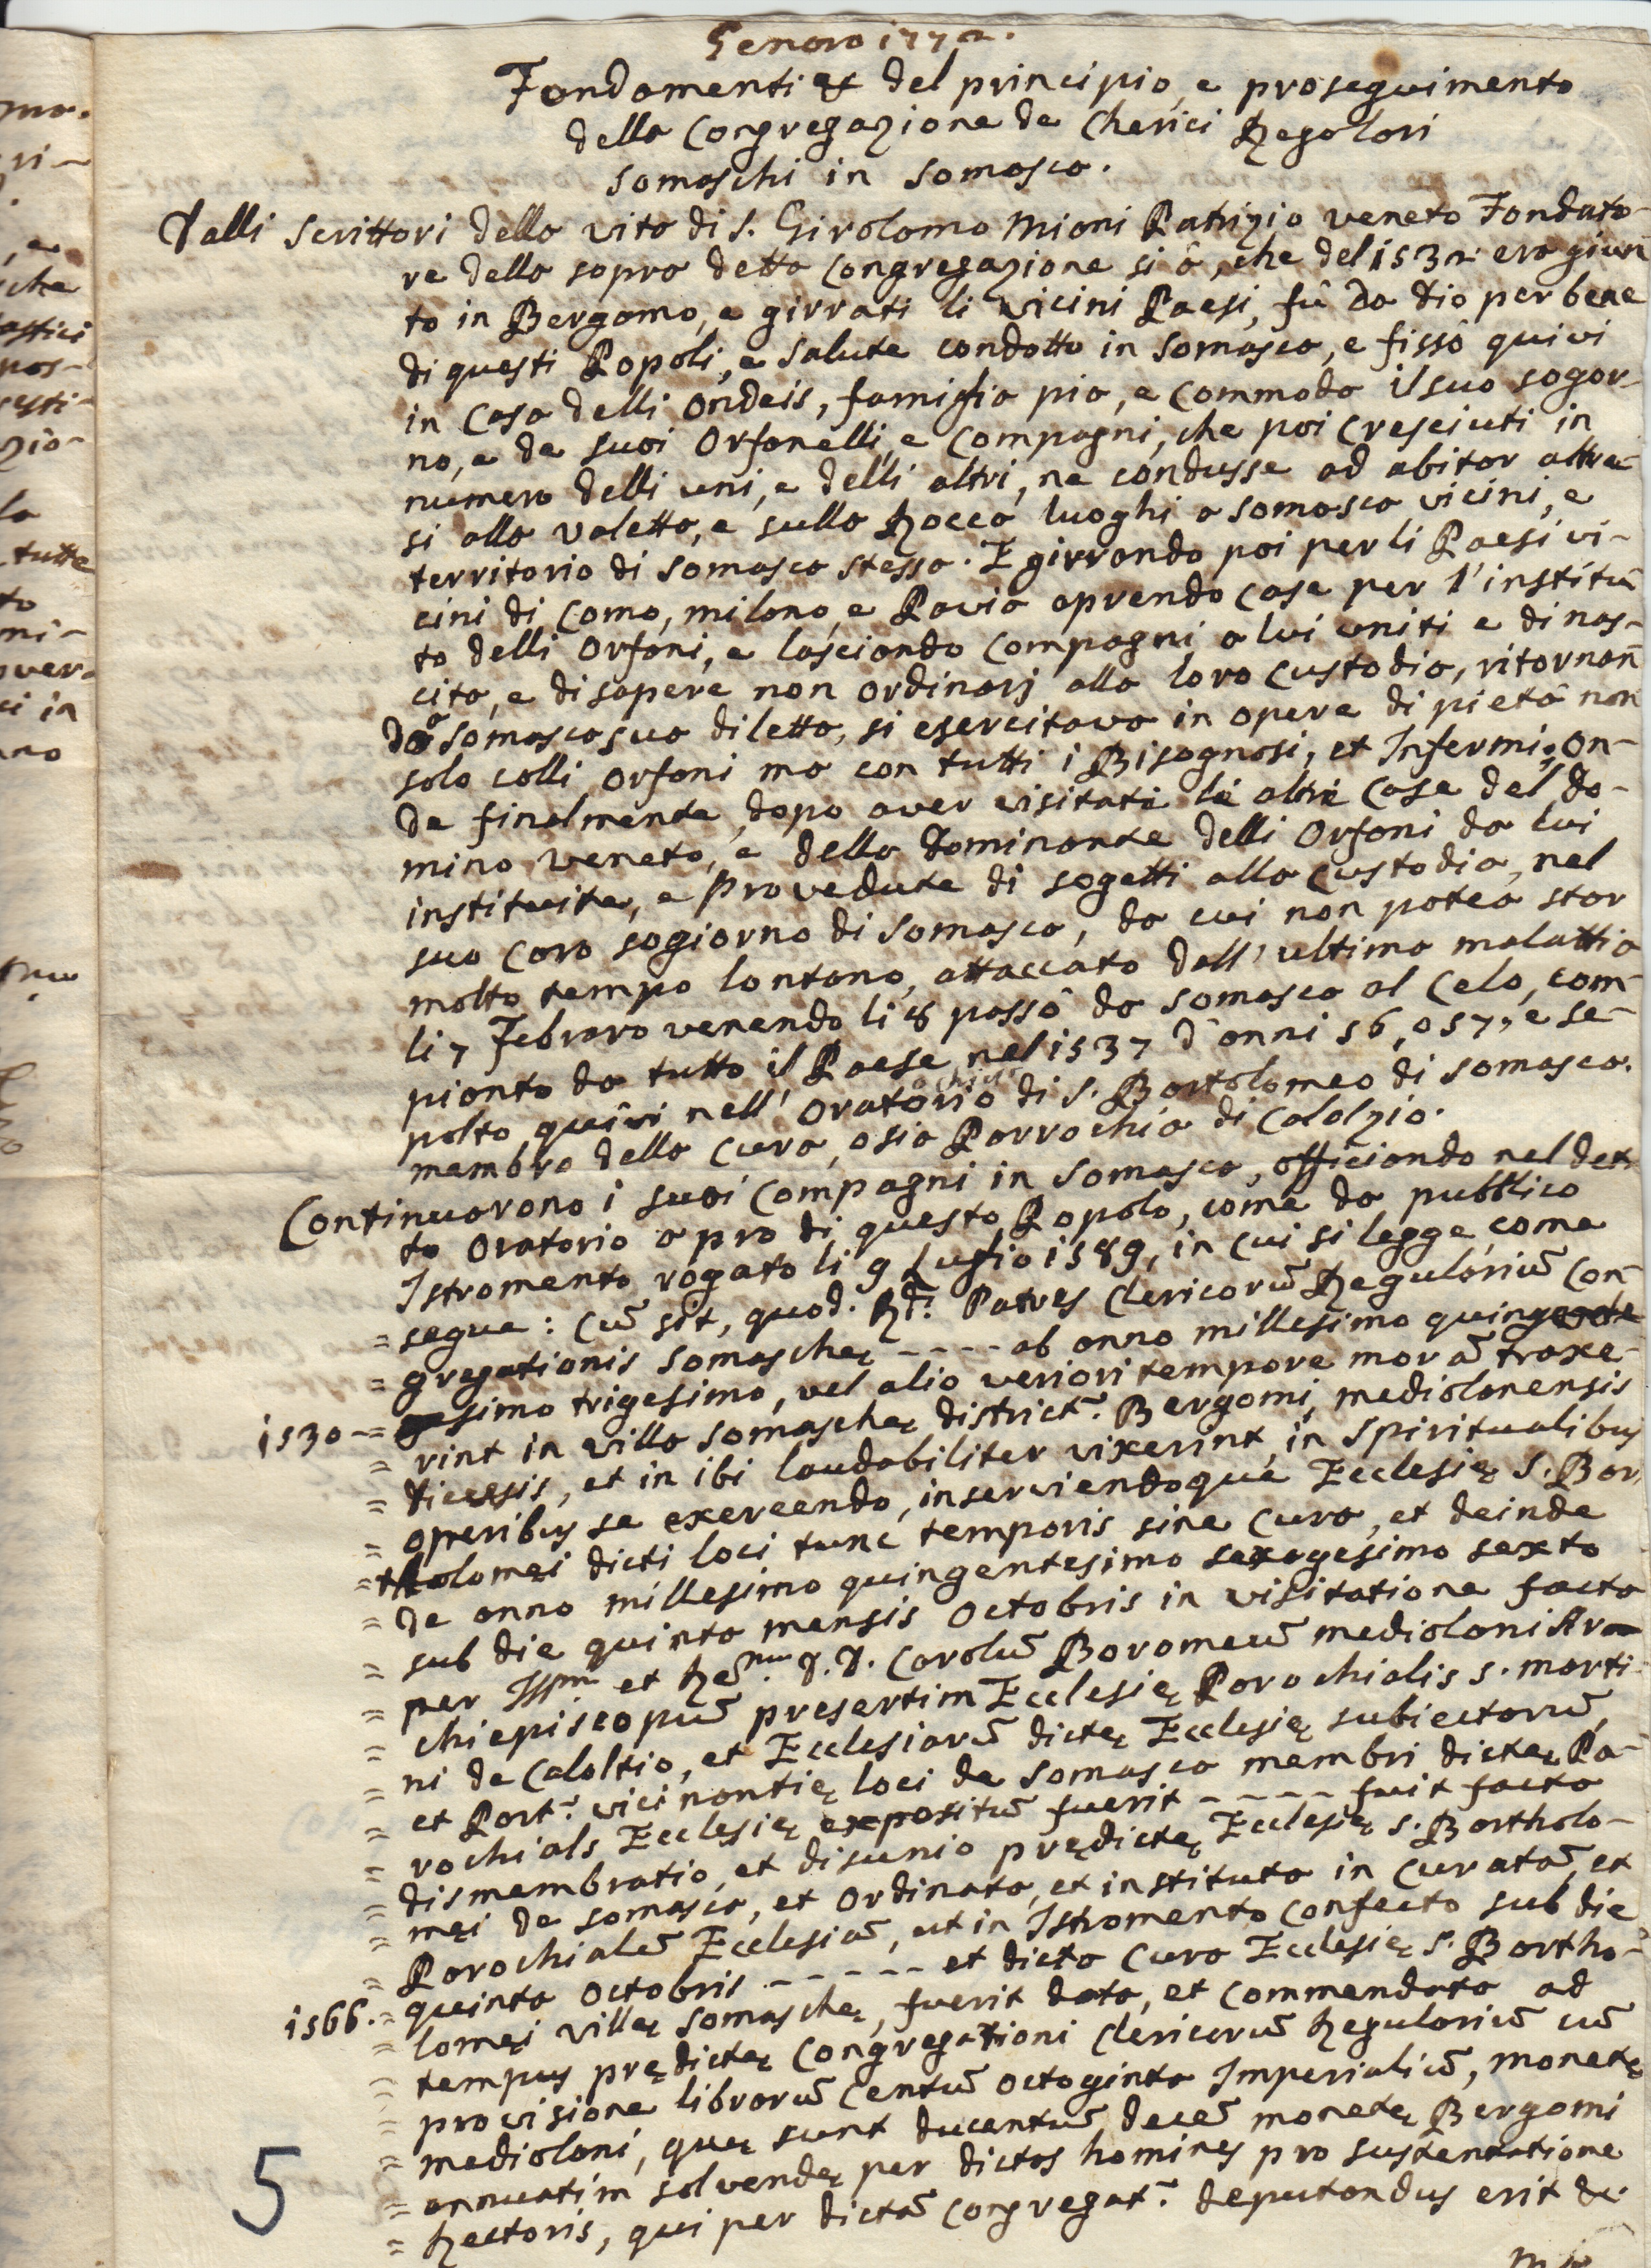 Genaro 1772.
Fondamenti & del principio, e proseguimento
della Congregazione de Cherici Regolari
Somaschi in Somasca.
Dalli Scrittori della vita di S. Girolamo Miani Patrizio Veneto Fondato-
re della sopra detta Congregazione si à, che del 1532 era giun-
to in Bergamo, e girrati li vicini Paesi, fù da Dio per bene
di questi Popoli, e salute condotto in Somasca, e fissò quivi
in Casa delli Ondeis, famiglia pia, e commoda il suo sogor-
no, e de suoi Orfanelli, e Compagni, che poi cresciuti in
numero delli uni, e delli altri, ne condusse ad abitar altre-
si alla Valetta, e sulla Rocca luoghi a Somasca vicini, e
territorio di Somasca stessa. E girrando poi per li Paesi vi-
cini di Como, Milano, e Pavia aprendo Case per l'institu-
to delli Orfani, e lasciando Compagni a lui uniti e di nas-
cita, e di sapere non ordinarj alla loro Custodia, ritornan-
do a Somasca sua diletta, si esercitava in opere di pietà non
solo colli Orfani ma con tutti i Bisognosi, et Infermi, on-
de finalmente, dopo aver visitate le altre Case del do-
mino Veneto, e della Dominante delli Orfani da lui
instituite, e provedute di sogetti alla Custodia, nel
suo caro sogiorno di Somasca, da cui non potea star
molto tempo lontano, attaccato dall'ultima malattia
li 7 Febraro venendo li 8 passò da Somasca al Celo, com-
pianto da tutto il Paese nel 1537 d'anni 56, o 57, e se-
polto quivi nell' Oratorio di S. Bartolomeo di Somasca.
membro della Cura, o sia Parrochia di Calolzio.
Continuarono i suoi Compagni in Somasca, officiando nel det-
to Oratorio a pro di questo Popolo, come da pubblico
Istromento rogato li 9 Luglio 1589, in cui si legge, come
= segue: Cū sit, quod. Rdi. Patres Clericorū Regulariū Con-
= gregationis Somaschę - - - - ab anno millesimo quinge
1530 - = simo trigesimo, vel alio veriori tempore morā traxe-
= rint in villa Somaschę district. Bergomi, mediolanensis
= dicesis, et in ibi laudabiliter vixerint, in Spiritualibus
= operibus se exercendo, inserviendoque Ecclesię S. Bar
= tholomęi dicti loci tunc temporis sine Cura, et deinde
= de anno millesimo quingentesimo sexagesimo sexto
= sub die quinto mensis Octobris in visitatione facta
= per Illm et Rm. D. D. Carolū Boromeū mediolani Ar
= chiepiscopū presertim Ecclesię Parochialis S. Marti
= ni de Caloltio, et Ecclesiarū dictę Ecclesię subiectarū,
= et Part. vicinantię loci de Somasca membri dictę Pa-
= rochials Ecclesię expositū fuerit - - - - fuit facta
= dismembratio, et disunio prędictę Ecclesię S. Bartholo-
= męi de Somasca, et Ordinata, et instituta in curatā, et
= Parochialē Ecclesiā, ut in Istromento confecto sub die
1566. = quinto Octobris - - - - - et dicta Cura Ecclesię S. Bartho-
= lomęi villę Somaschę, fuerit data, et commendata ad
= tempus prędictę Congregationi Clericorū Regulariū cū
= provisione librarū Centū octoginta Imperialiū, monetę
= mediolani, quę sunt ducentū decē monetę Bergomi
= annuatim solvendę per dictos homines pro sustentatione
= Rectoris, qui per dictā Congregat. deputandus erit de
5